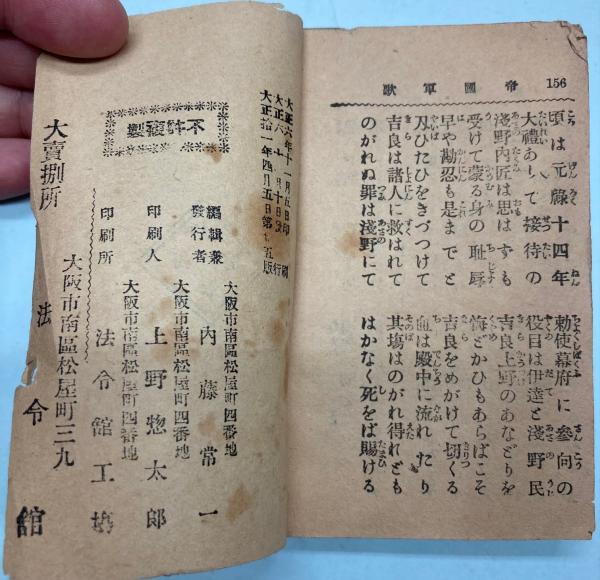 帝國軍歌 156
頃は元祿十四年 勅使幕府に參向の
大禮あ て接待の 役目は伊達と淺野民
淺野内匠は思はずも 吉良上野のあなどりを
受けて蒙る身の耻辱 悔どかひもあらばこそ
早や勘忍も是までと 吉良をめがけて切くる
刃ひたひをきづつけて 血は殿中に流れたり
吉良は諸人に救はれて 其塲はのがれ得れども
のがれぬ罪は淺野にて はかなく死をば賜ける
大正六年十一月五日印刷
大正六年 月十日發行
大正拾一年四月五日第 五版
不許複製
編輯兼發行者 大阪市南區松屋町四番地 内藤常一
印刷人 大阪市南區松屋町四番地 上野惣太郎
印刷所 大阪市南區松屋町四番地 法令館工塲
大賣捌所 大阪市南區松屋町三九 法令館